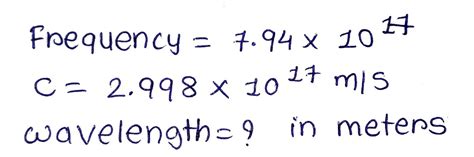 Frequency = 7.94 x 10^17
C = 2.998 x 10^17 m/s
wavelength = ? in meters